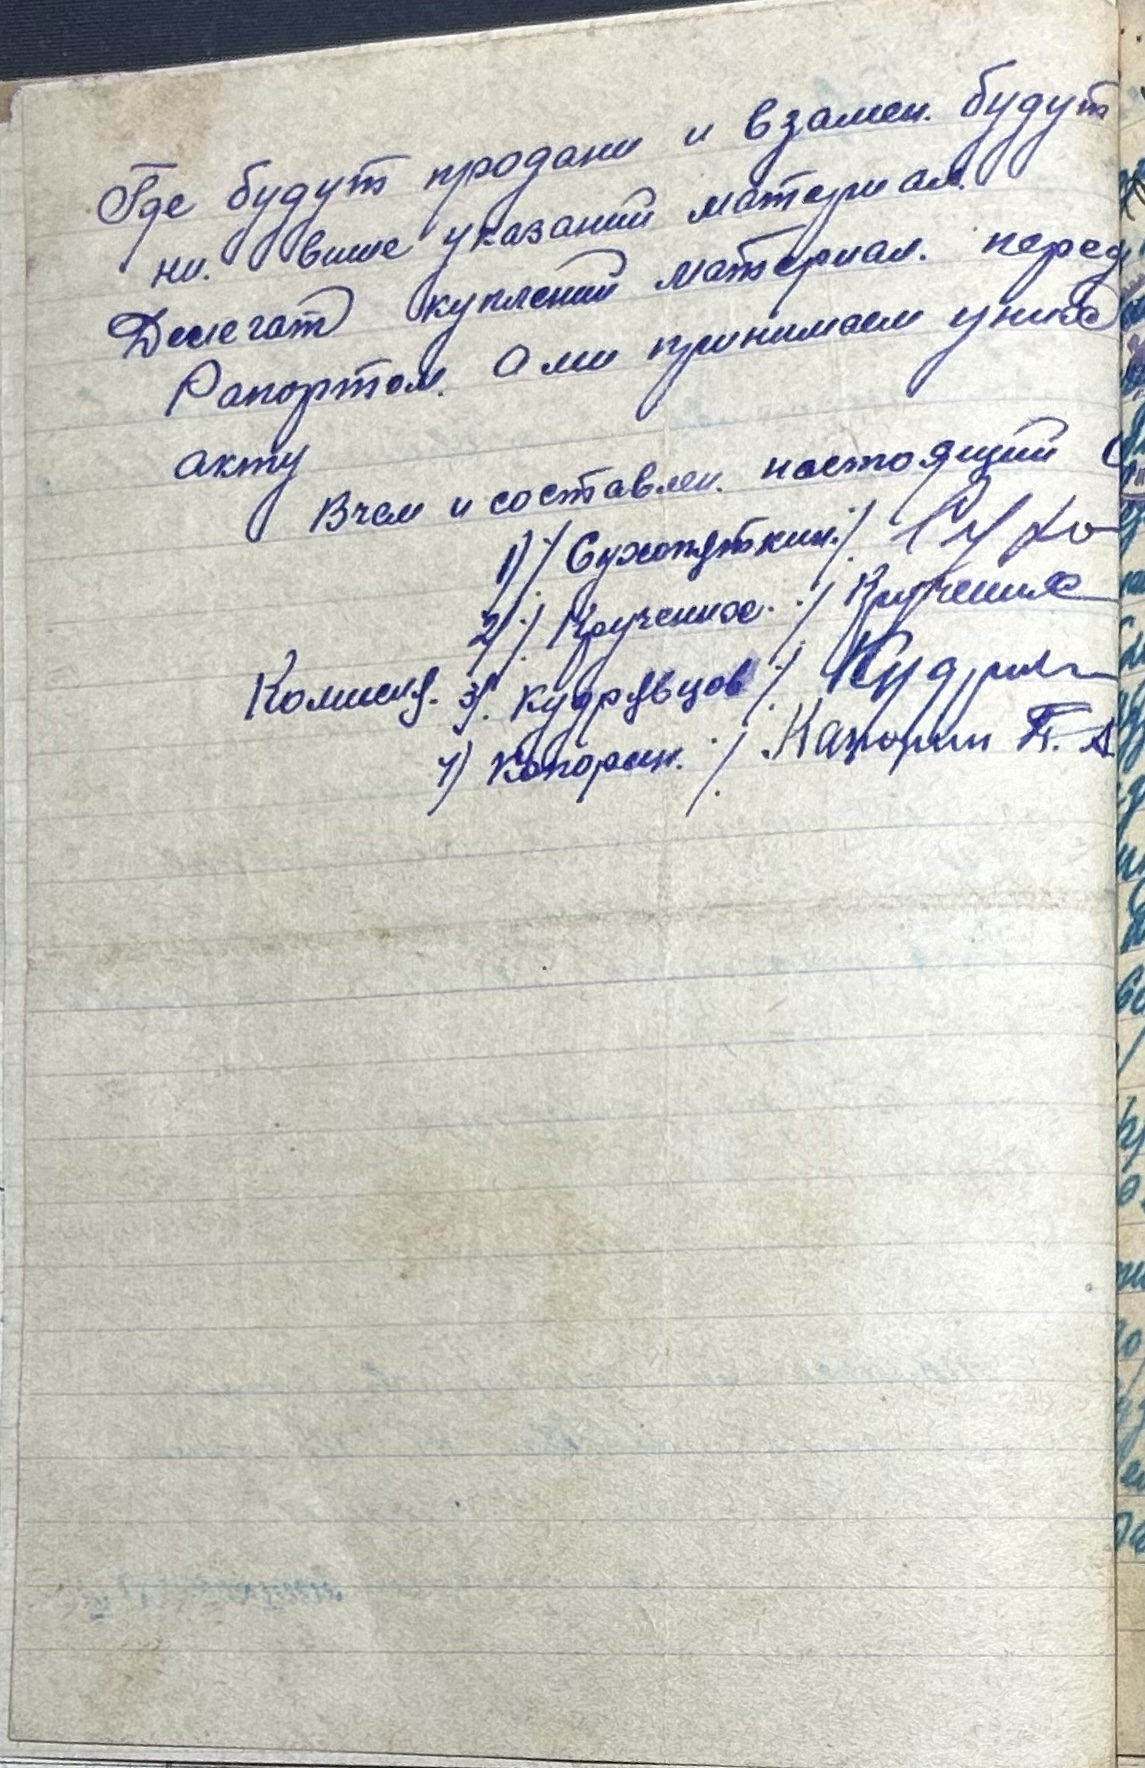 Где будут продани и взамен. будут
ни. више указаний материал.
Делегат куплений материал. перед
Рапортом. а ми принимаем у них
акту
Вчем и составлен. настоящий
1) / Сухопяткин. / Сухо
2) / Крученюк. / Крученюк
Комисия. 3) Кудрявцов / Кудрявц
4) Капорин. / Капорин П. А